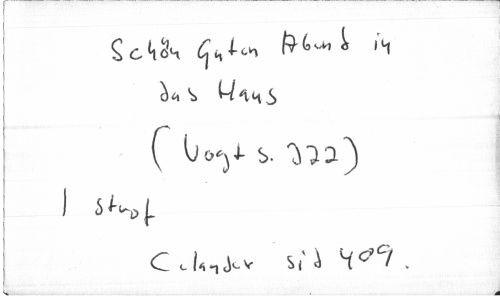 Schön Guten Abend in
das Haus
(Vogt s. 322)
1 strof
Celander sid 409.